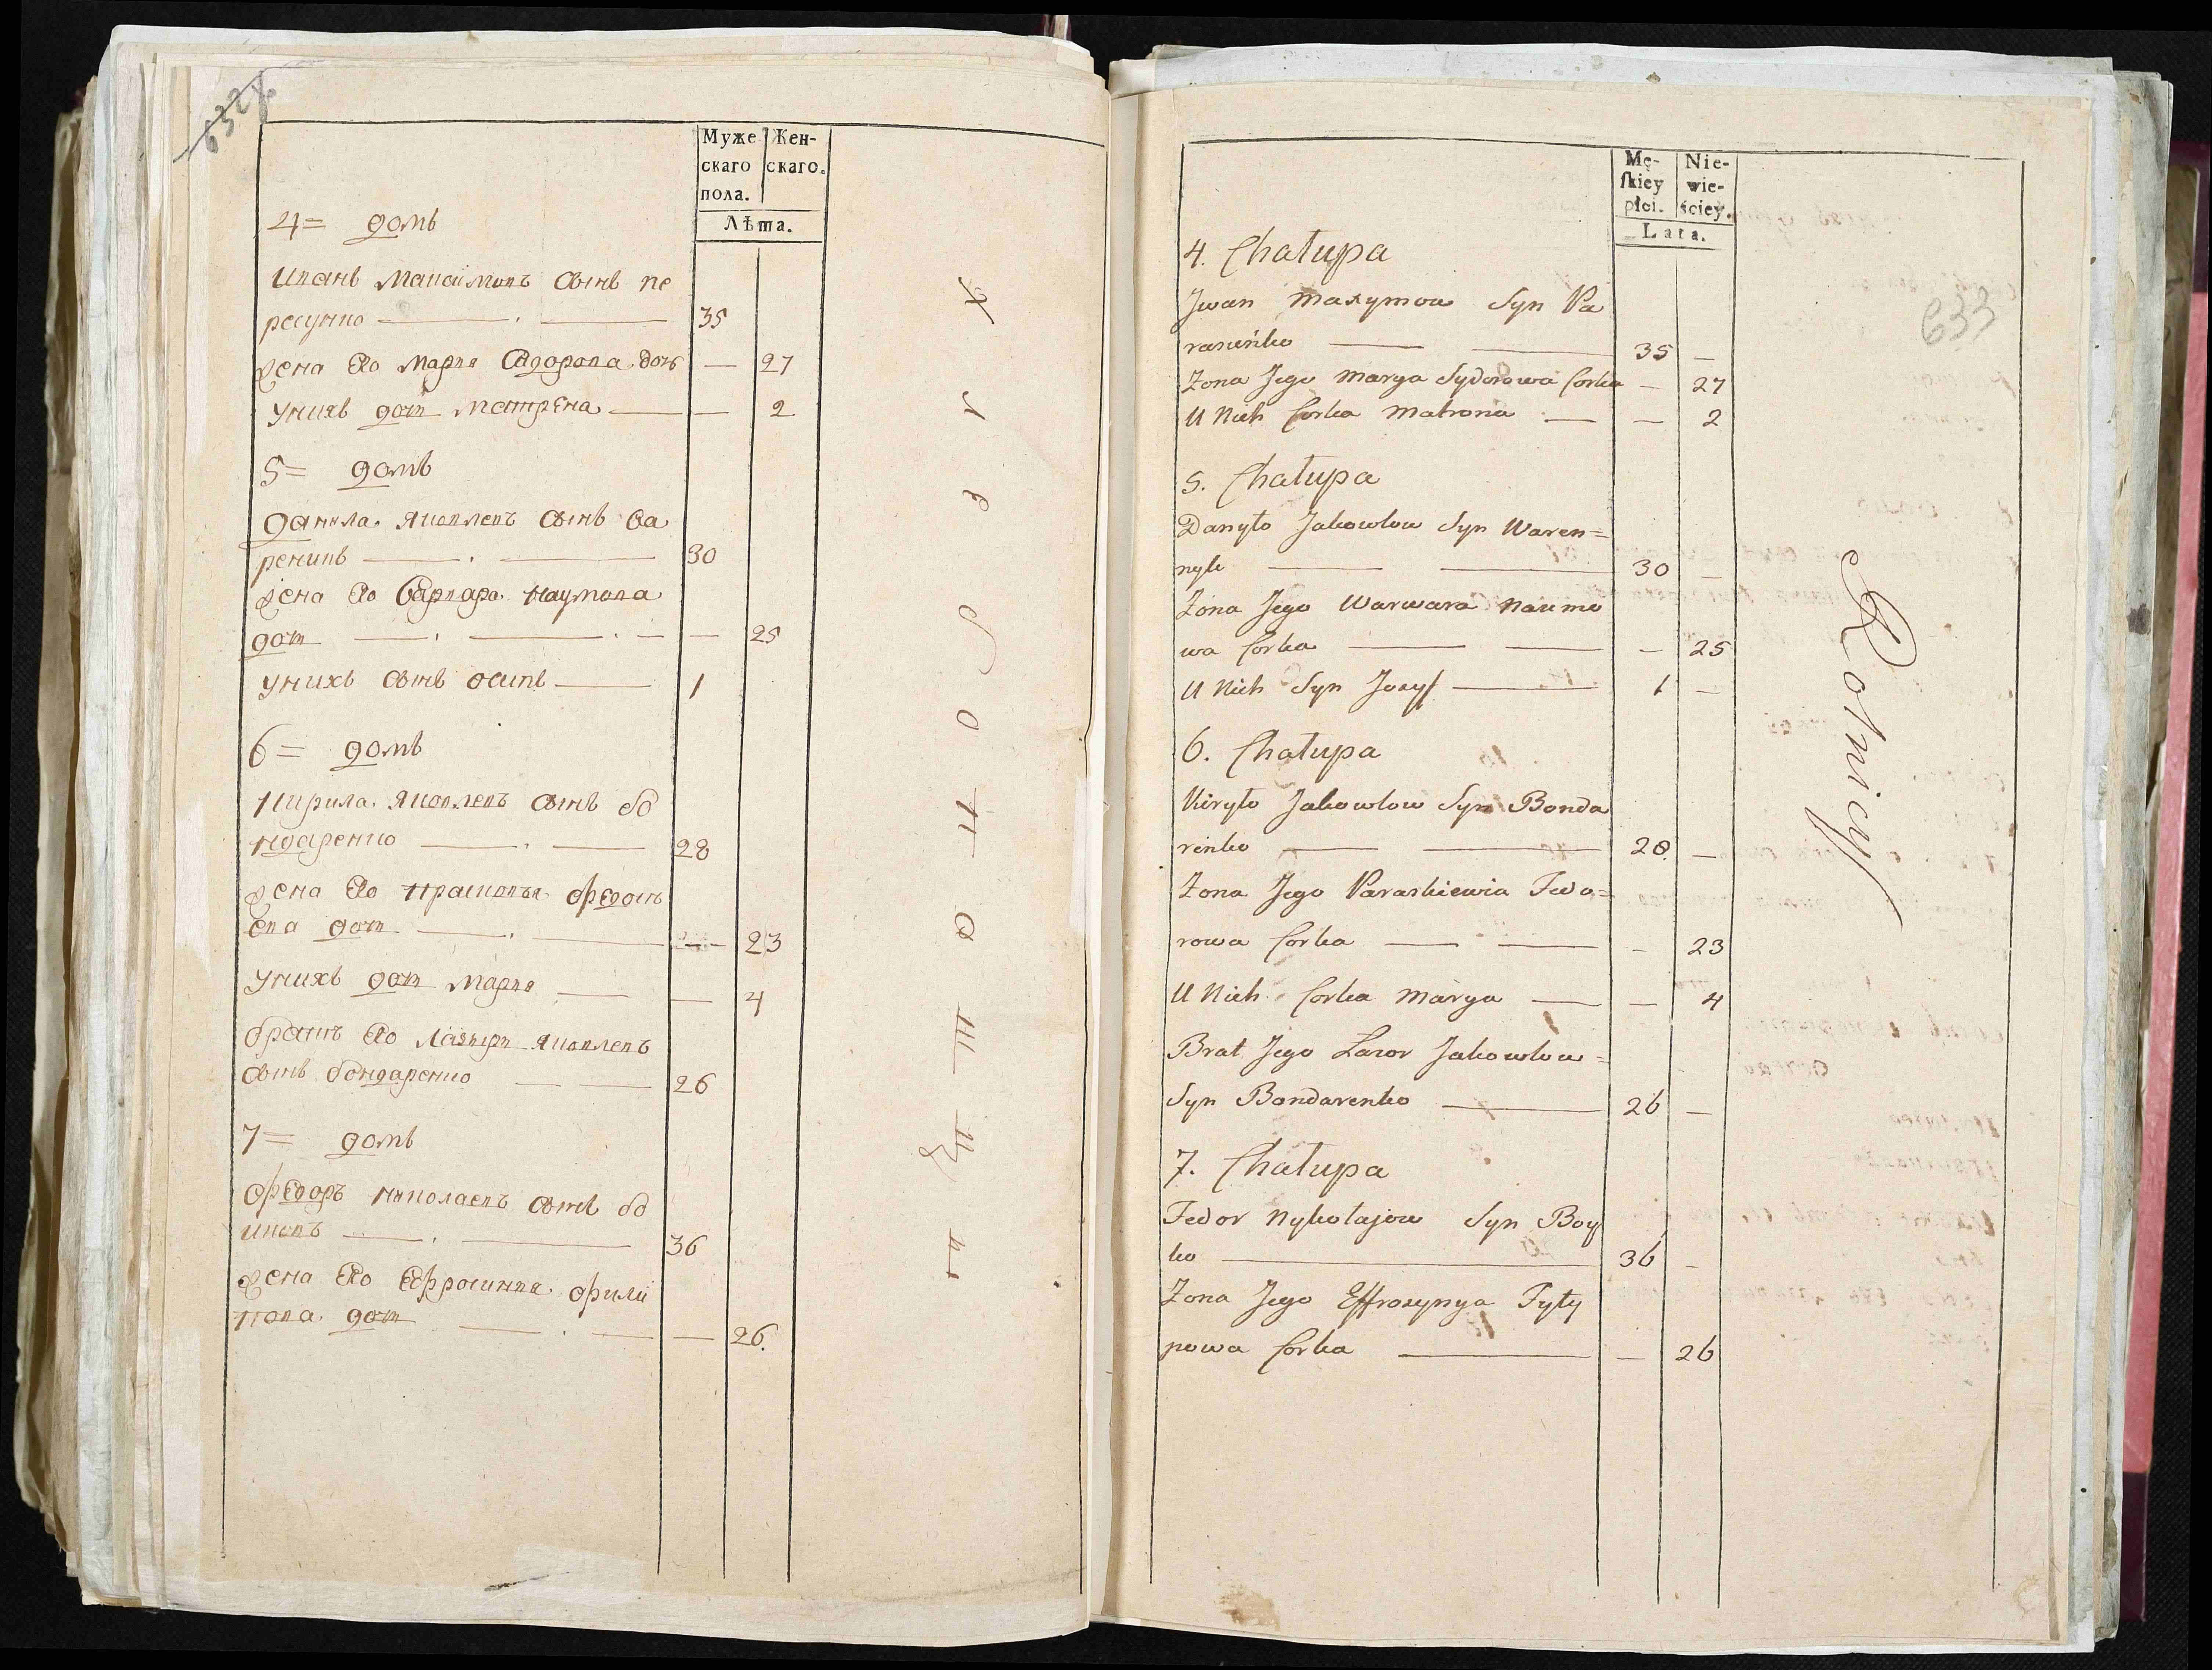 632
Муже
скаго
пола.
Жен-
скаго.
Лѣта.
4= домъ
Иванъ Максимовъ сынъ па
расунко 35
жена Его Мария Сидорова дочь — 27
Унихъ дочь Матрена — 2
5= домъ
Данила Яковлевъ сынъ ва
реникъ 30
жена Его Варвара Наумова
дочь — 25
унихъ сынъ осипъ 1
6= домъ
Кирила Яковлевъ сынъ бо
ндаренко 28
жена Его Прасковья Федось
ева дочь — 23
Унихъ дочь Мария — 4
братъ Его Лазарь Яковлевъ
сынъ бондаренко 26
7= домъ
Федоръ Николаевъ сынъ бо
иковъ 36
жена Его Ефросинья Фили
пова дочь — 26.
Хлебопашцы
633
Mę-
ſkiey
płci.
Nie-
wie-
ściey.
Lata.
4. Chałupa
Jwan Maxymow Syn Pa
rasuńko 35 —
Zona Jego Marya Sydorowa Corka — 27
U Nich Corka Matrona — 2
5. Chałupa
Danyło Jakowlow Syn Waren=
nyk 30 —
Zona Jego Warwara Naumo
wa Corka — 25
U Nich Syn Jozyf 1 —
6. Chałupa
Kiryło Jakowlow Syn Bonda
renko 28. —
Zona Jego Paraskiewia Fedo=
rowa Corka — 23
U Nich Corka Marya — 4
Brat Jego Lazor Jakowlow=
Syn Bondarenko 26 —
7. Chałupa
Fedor Nykołajow Syn Boy
ko 36 —
Zona Jego Effrozynya Fyły
powa Corka — 26
Rolnicy